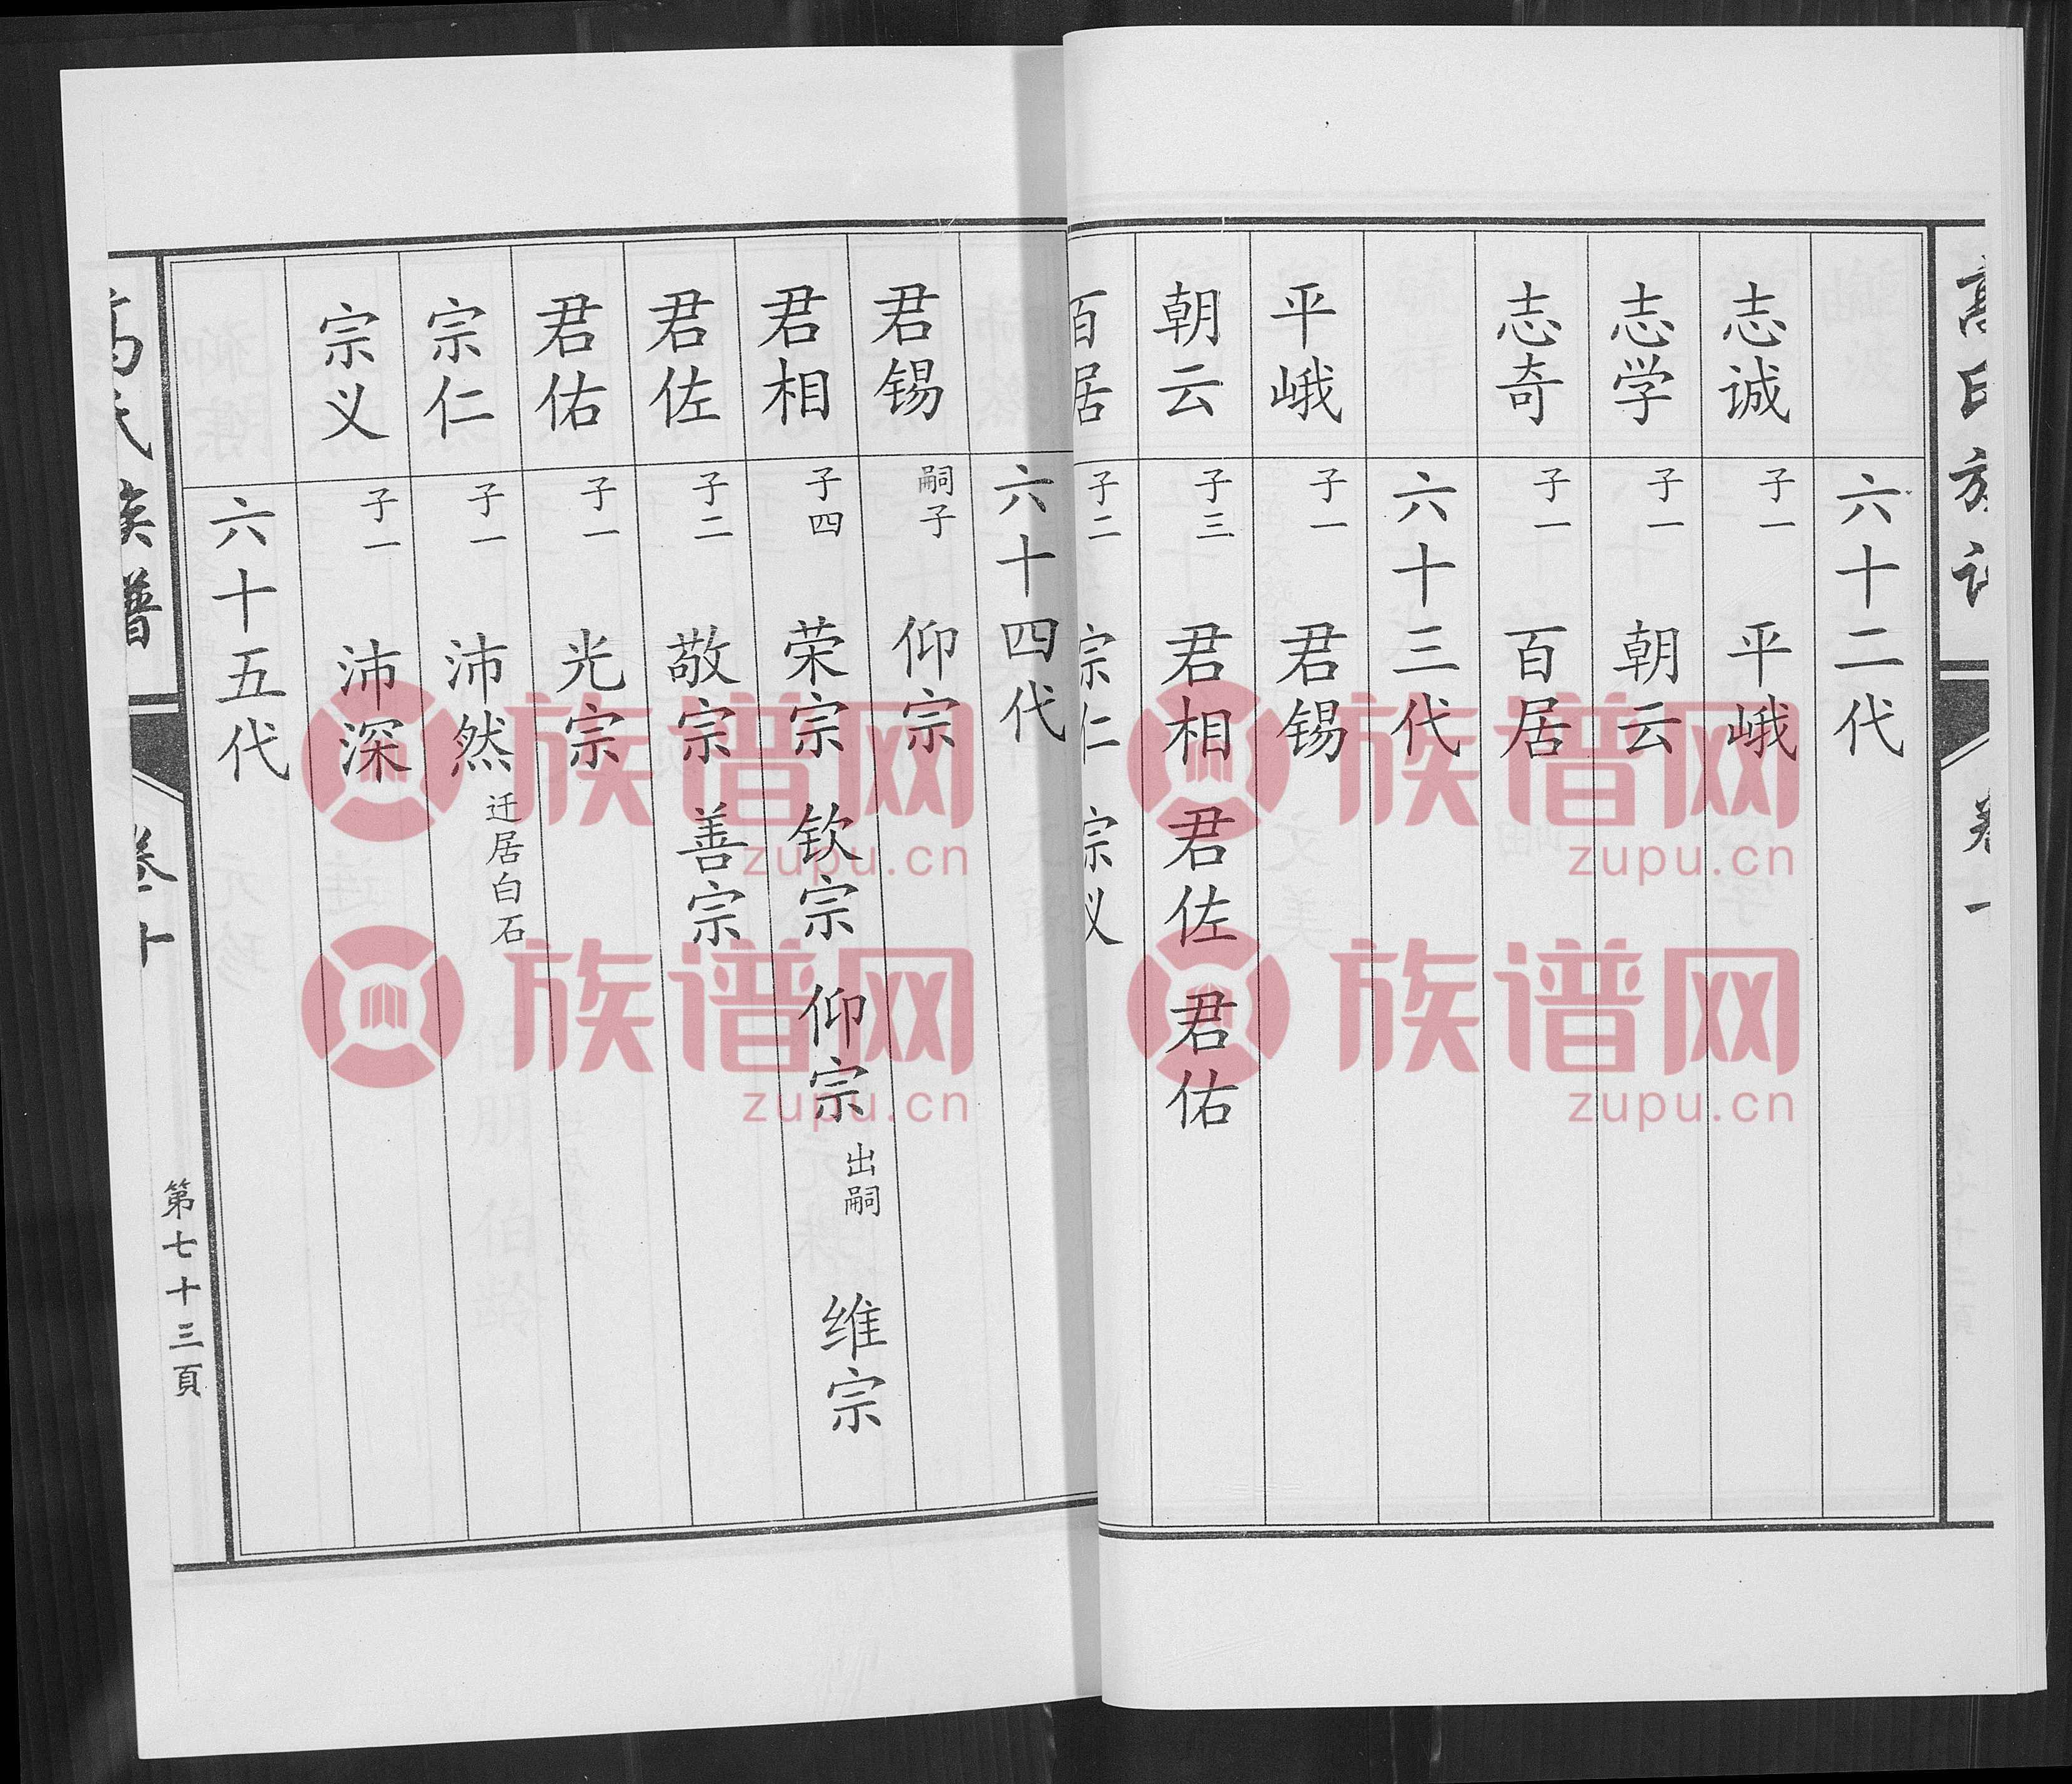 六十二代
志诚 子一 平峨
志学 子一 朝云
志奇 子一 百居
六十三代
平峨 子一 君锡
朝云 子三 君相 君佐 君佑
百居 子二 宗仁 宗义
六十四代
君锡 嗣子 仰宗
君相 子四 荣宗 钦宗 仰宗 出嗣 维宗
君佐 子二 敬宗 善宗
君佑 子一 光宗
宗仁 子一 沛然 迁居白石
宗义 子一 沛深
六十五代
高氏族譜
卷十
第七十三頁
族谱网
zupu.cn
族谱网
zupu.cn
族谱网
zupu.cn
族谱网
zupu.cn